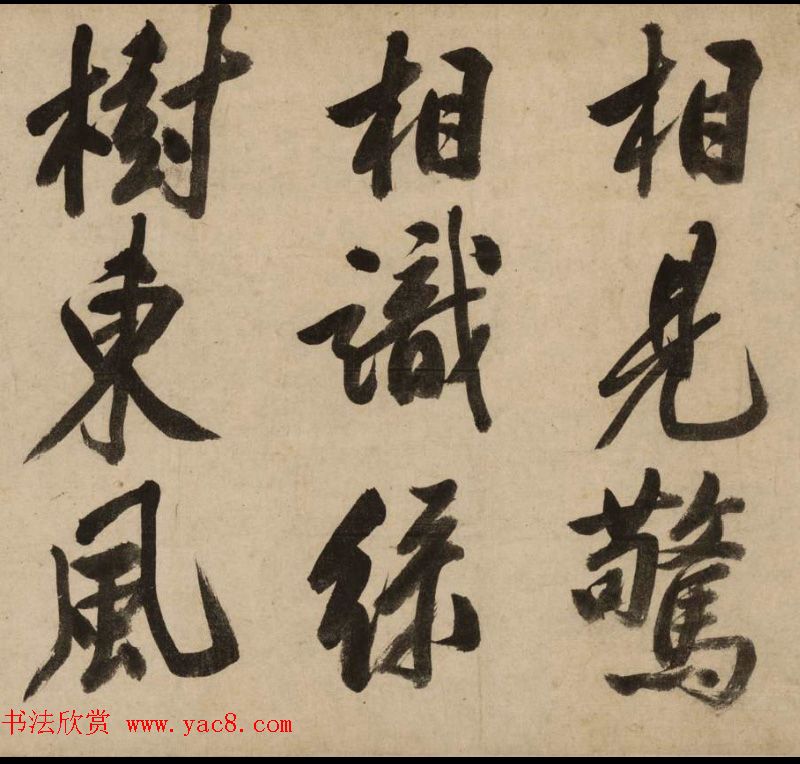 相見驚
相識緑
樹東風
书法欣赏 www.yac8.com